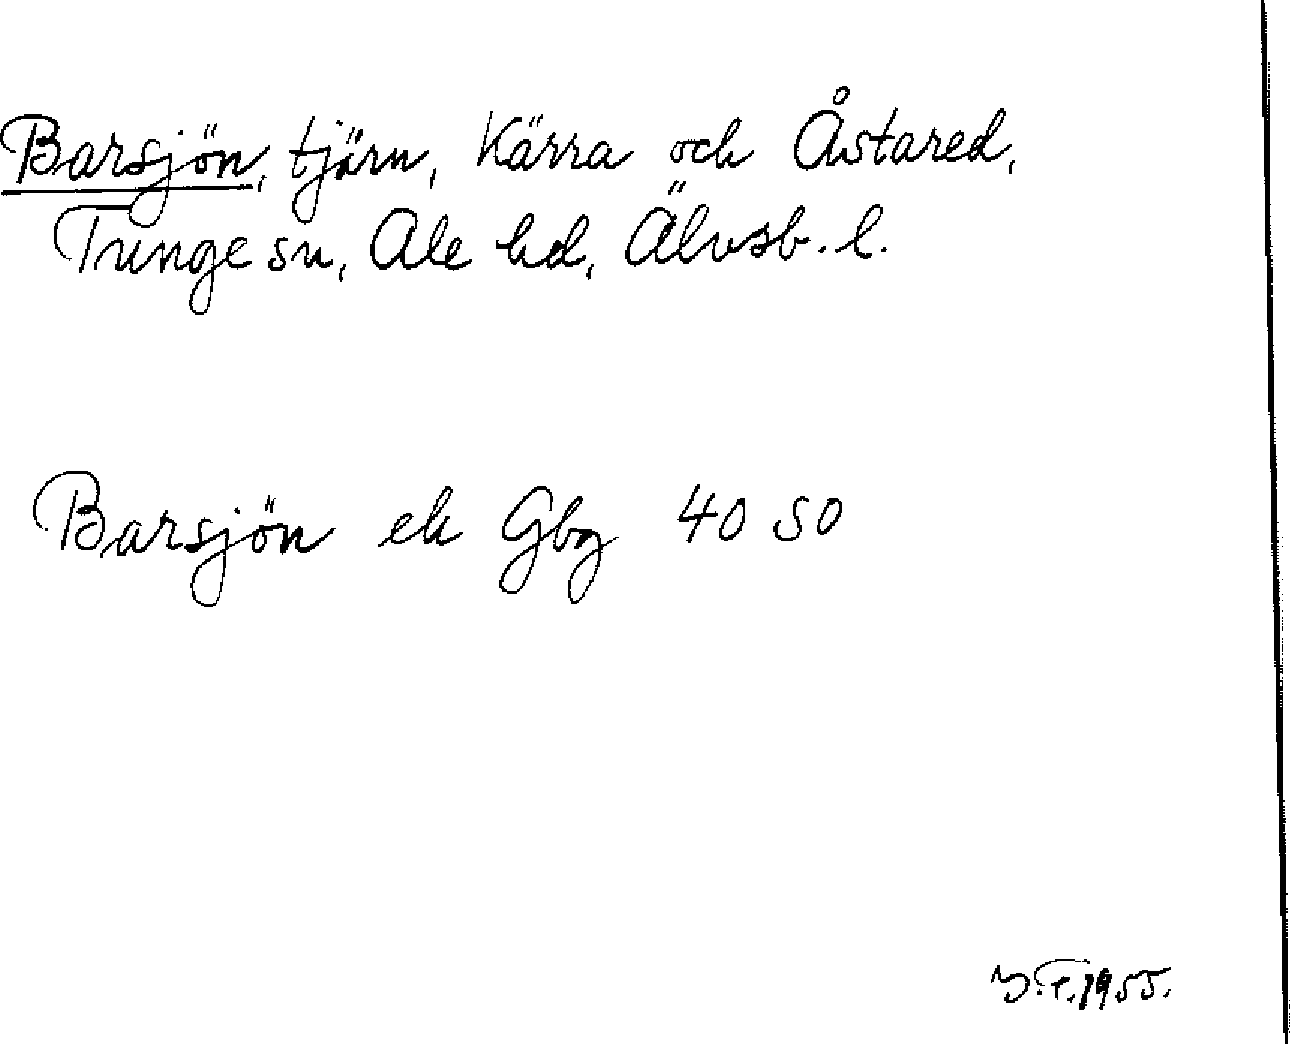 Barsjön, tjärn, Kärra och Åstared,
Tunge sn, Ale hd, Älvsb. l.
Barsjön ek Gbg 40 SO
1955.